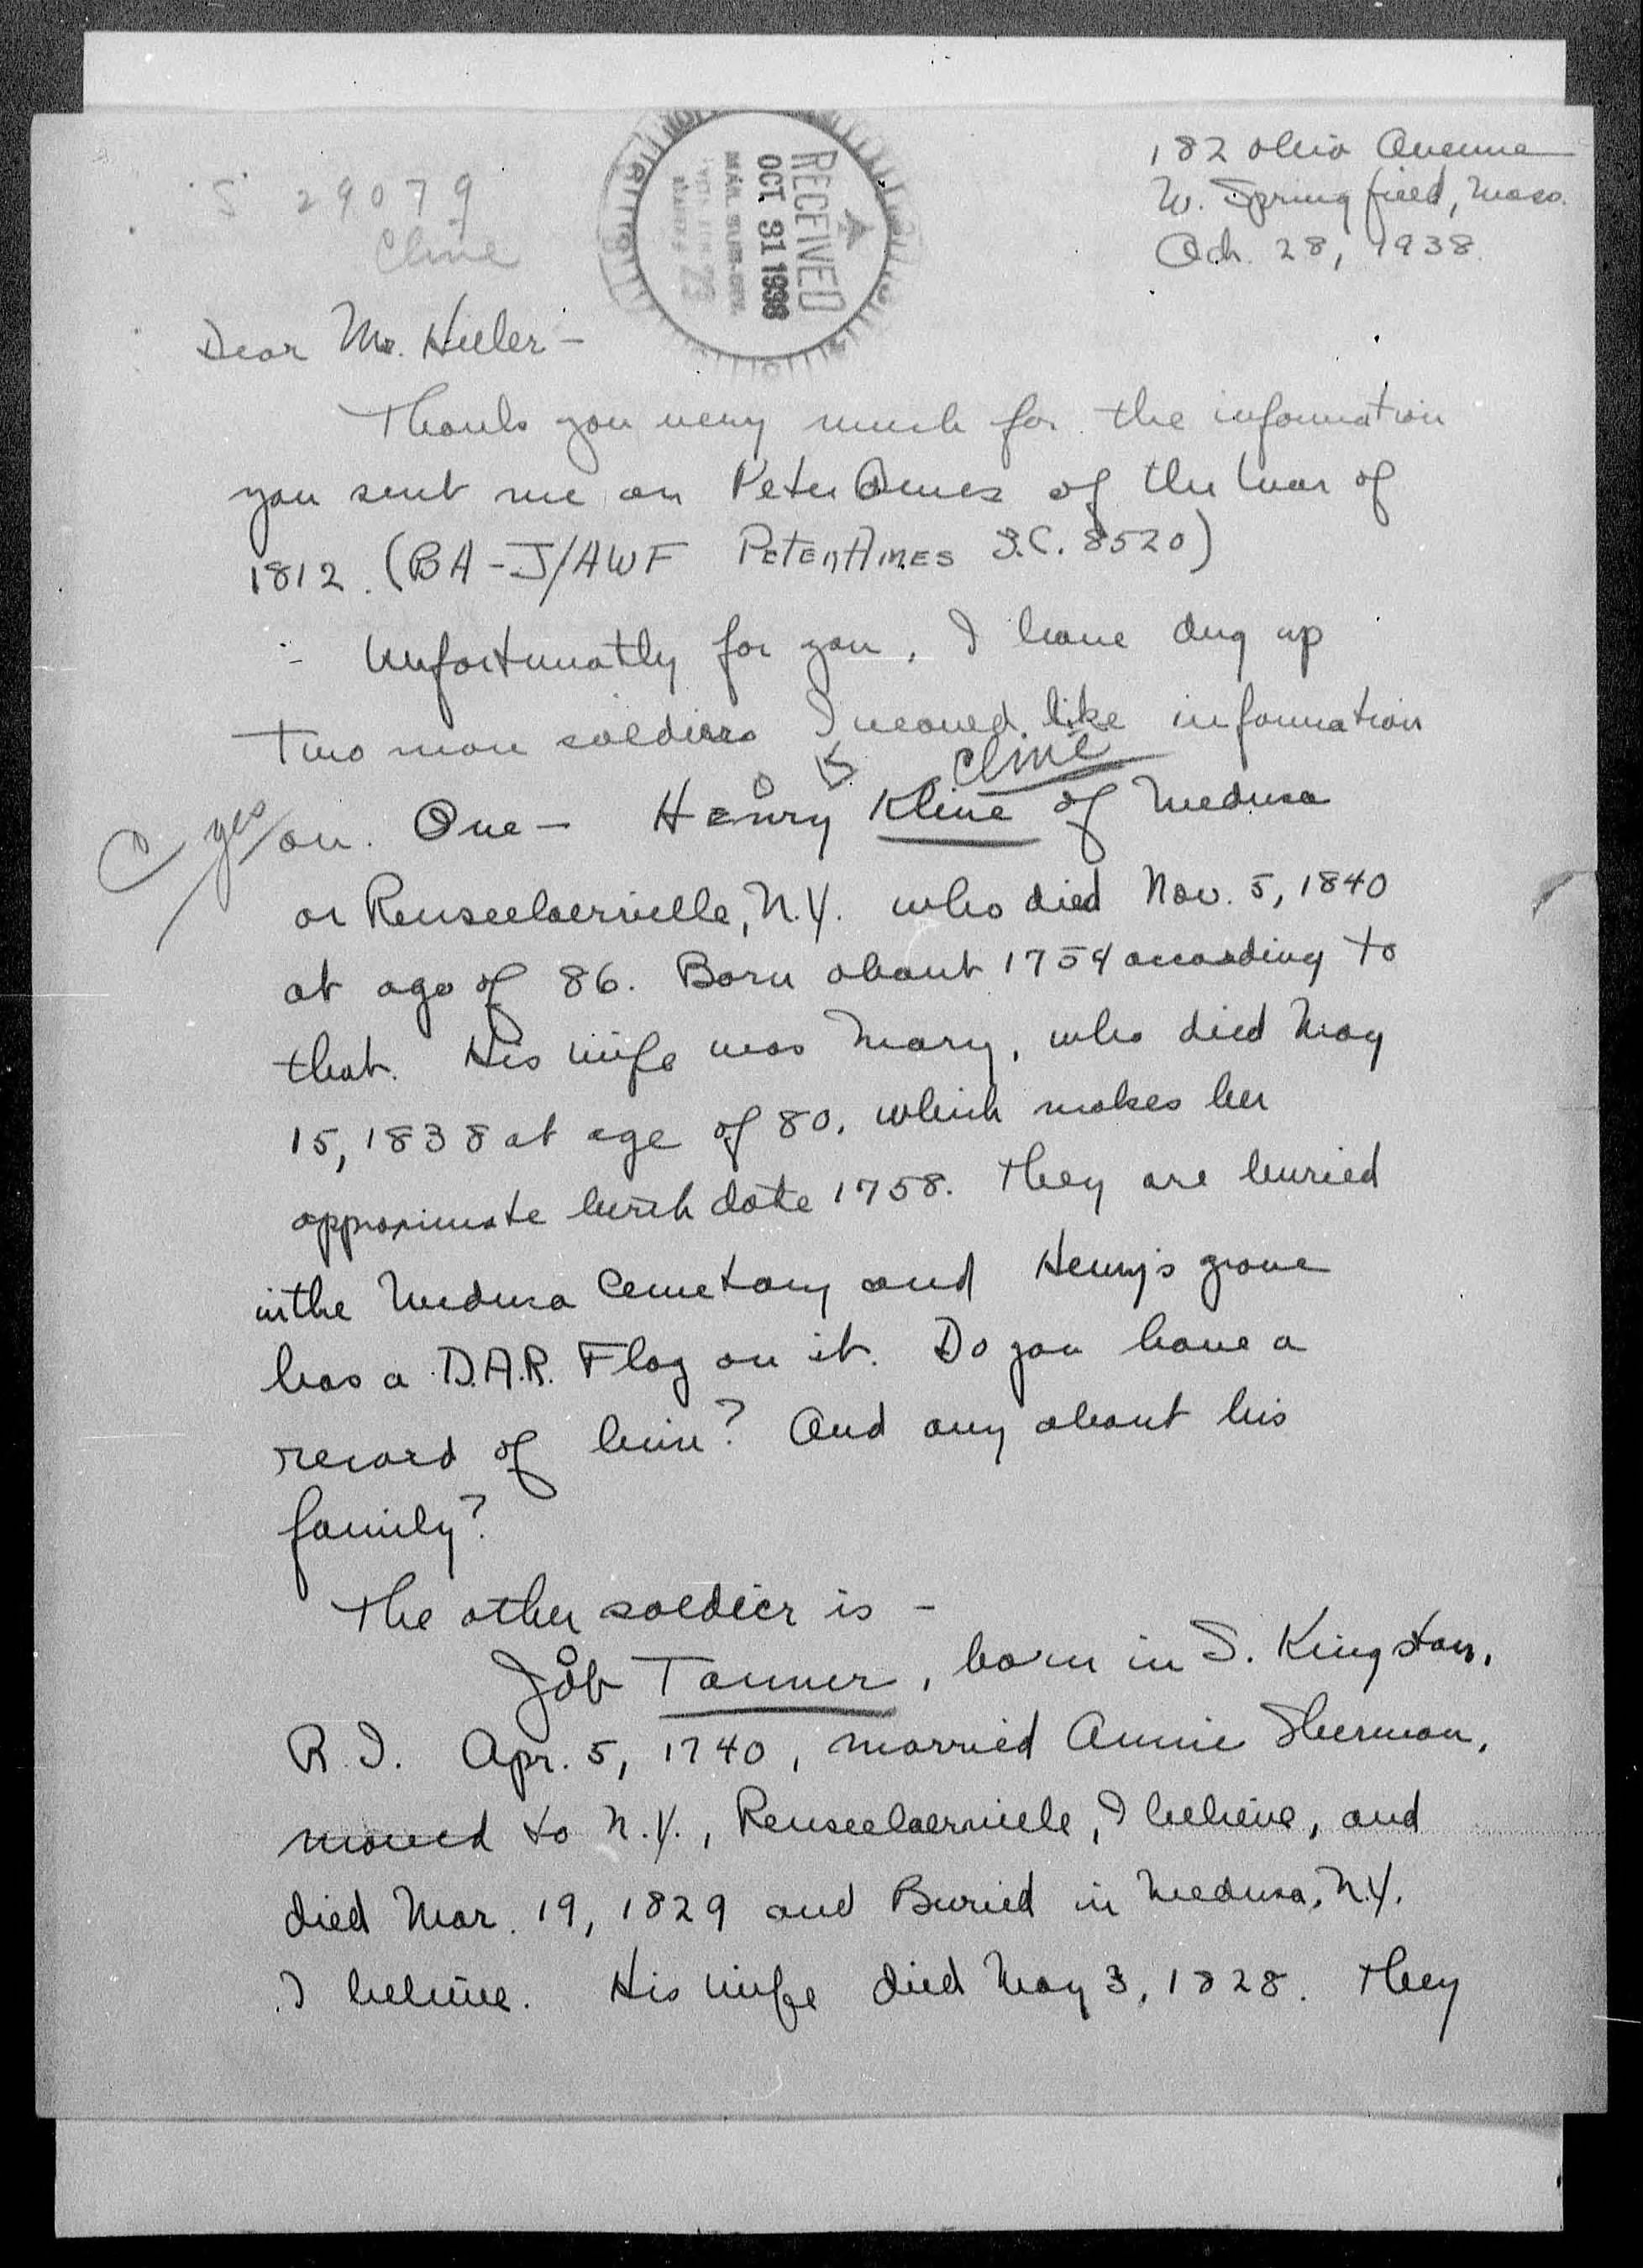 182 Ohio Avenue
W. Springfield, Mass.
Oct. 28, 1938
S 29079
Cline
RECEIVED
OCT 31 1938
23
Dear Mr. Hiller -
Thank you very much for the information
you sent me on Peter Ames of the War of
1812. (BA-J/AWF Peter Ames S.C. 8520)
Unfortunatly for you, I have dug up
two more soldiers I would like information
Cline
yes
on. One - Henry Kline of Medusa
or Rensselaerville, N.Y. who died Nov. 5, 1840
at age of 86. Born about 1754 according to
that. His wife was Mary, who died May
15, 1838 at age of 80, which makes her
approximate birth date 1758. They are buried
in the Medusa Cemetary and Henry's grave
has a D.A.R. Flag on it. Do you have a
record of him? And any about his
family?
The other soldier is -
Job Tanner, born in S. Kingston,
R.I. Apr. 5, 1740, married Annie Sherman,
moved to N.Y., Rensselaerviele, I believe, and
died Mar. 19, 1829 and Buried in Medusa, N.Y.
I believe. His wife died May 3, 1828. They